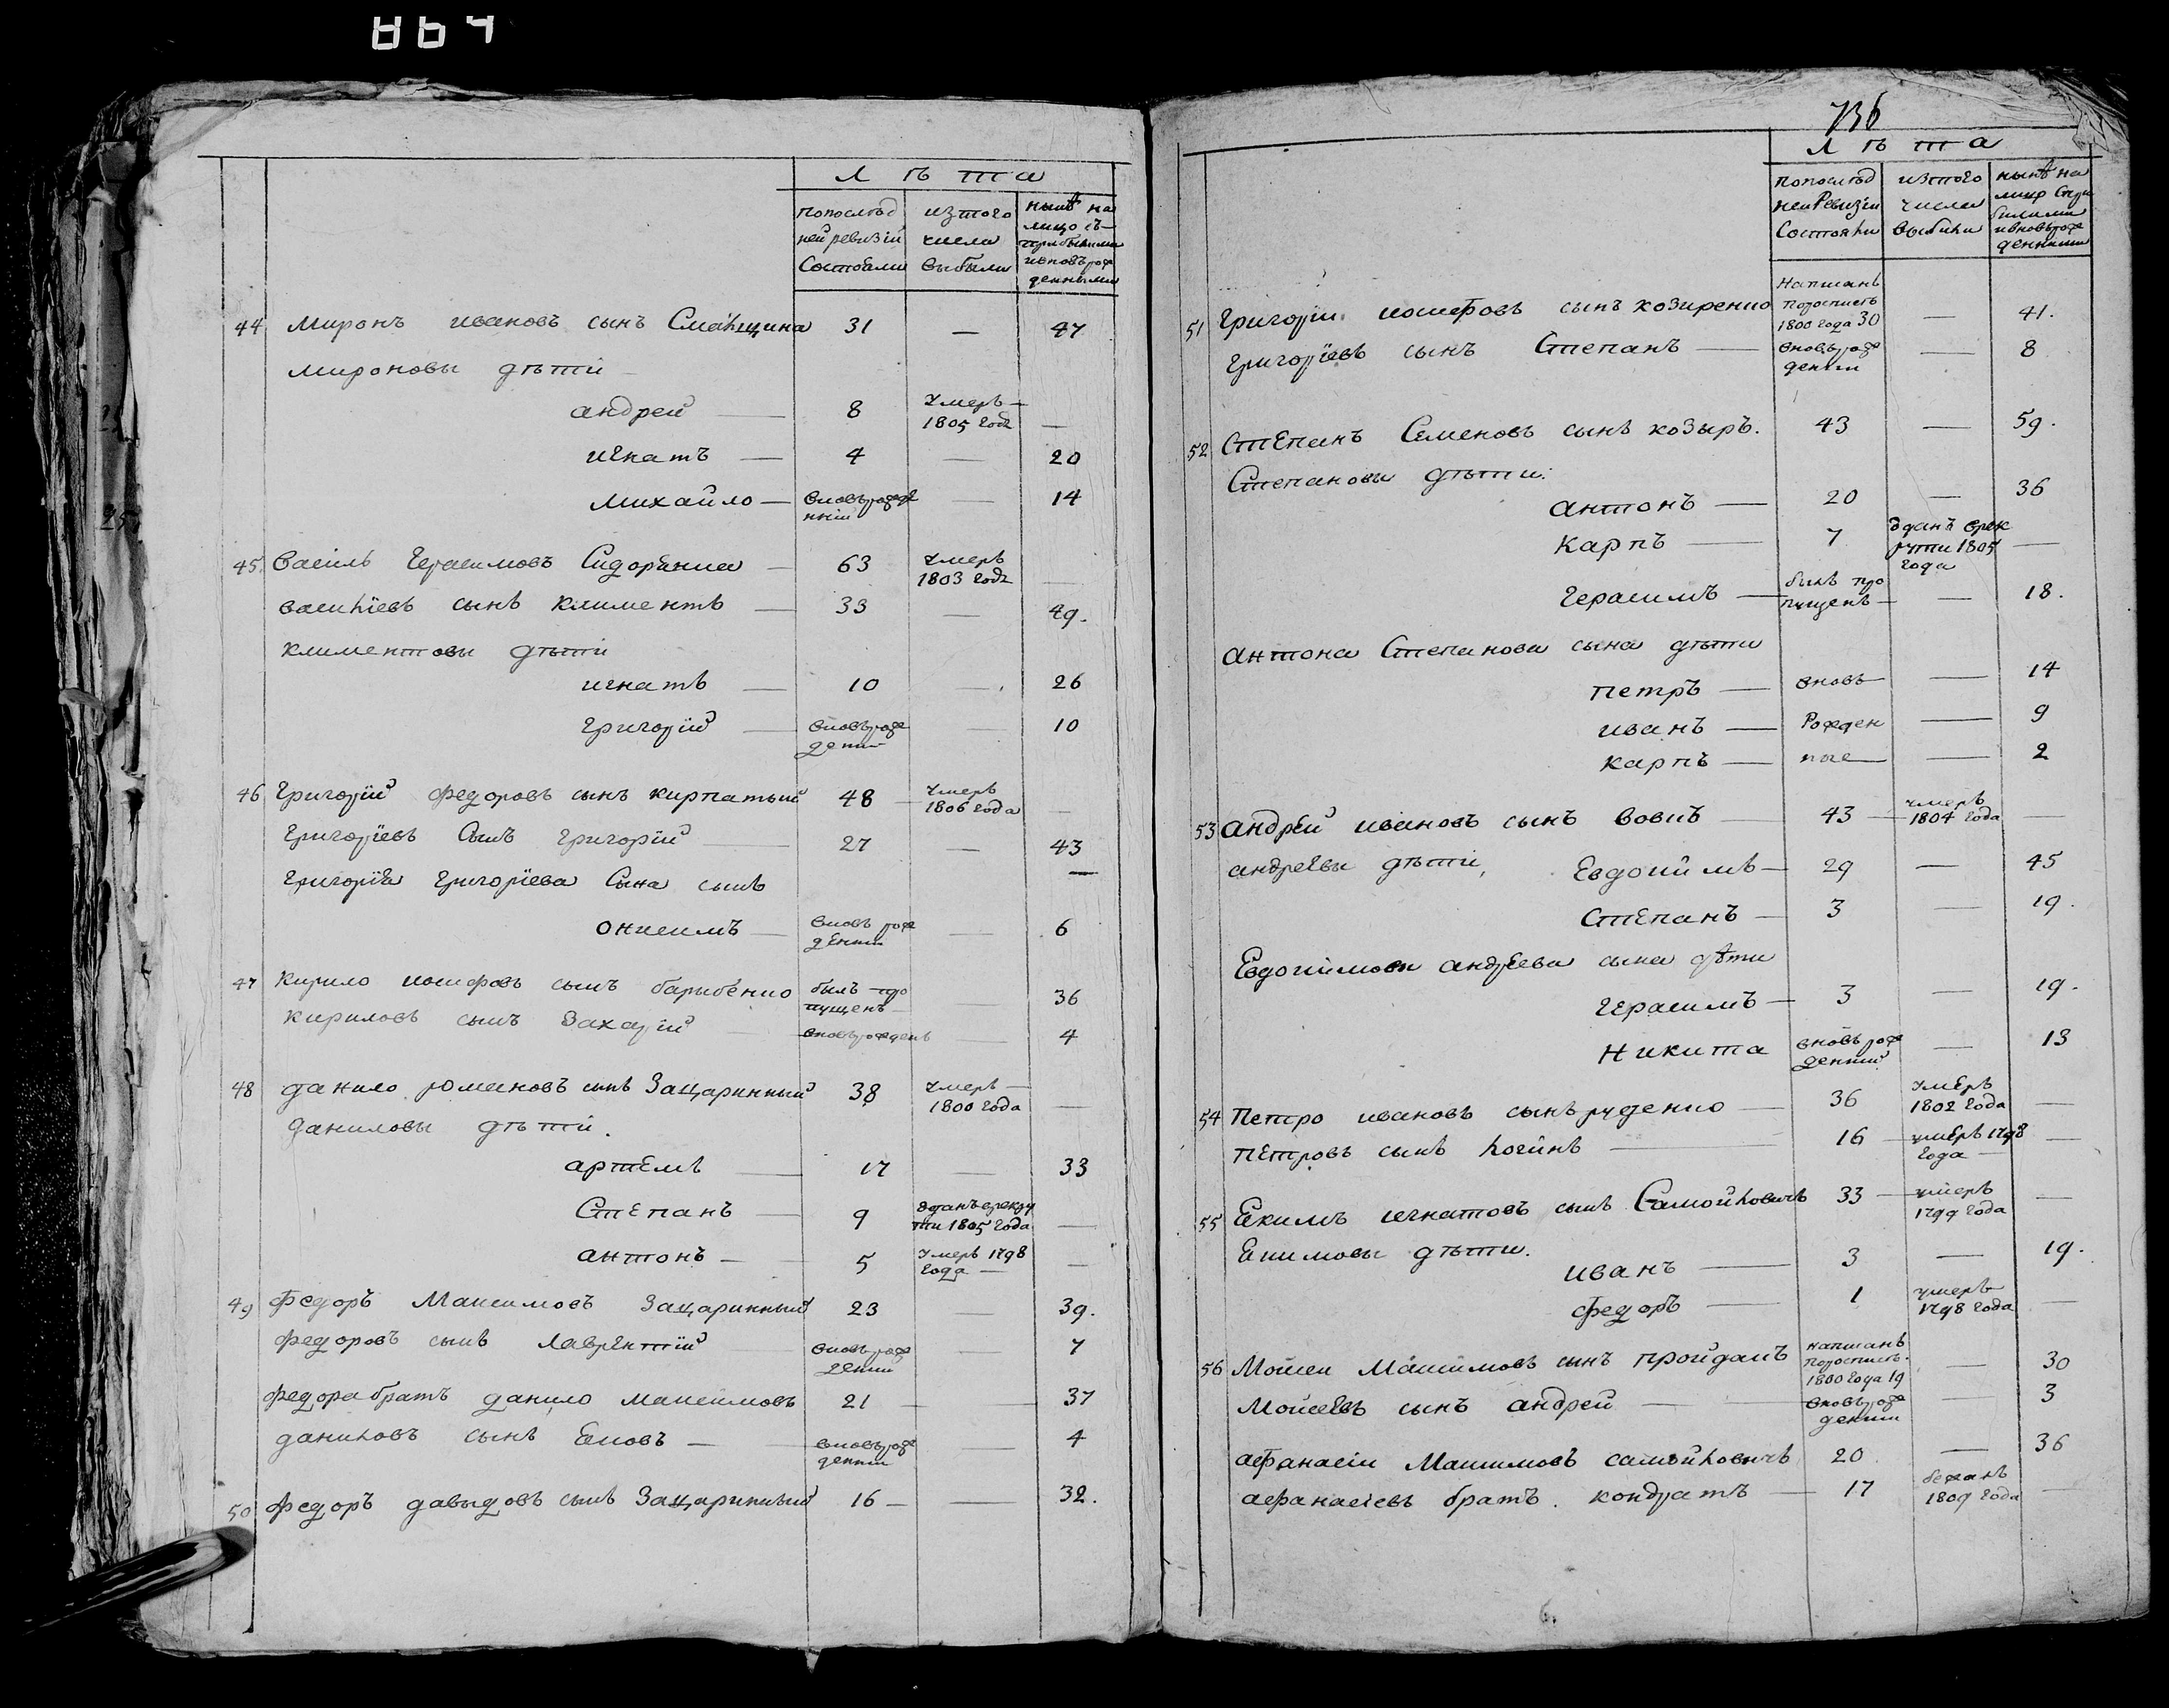 864
лѣта
попослѣд ней ревизій Состояли | изтого числа выбыли | нынѣ на лицо съ прибылими ивновьрож денными
44 Миронъ ивановъ сынъ 31 — 47
Мироновы дѣти
андрей — 8 Умеръ 1805 года —
игнатъ — 4 — 20
михайло — вновьрожде нній — 14
45. Василь Герасимовъ Сидоренко — 63 Умеръ 1803 года —
василіевъ сынъ климентъ — 33 — 49.
климентовы дѣти
игнатъ — 10 — 26
григорій — вновьрож деній — 10
46 Григорій федоровъ сынъ кирпатый 48 — Умеръ 1806 года —
григоріевъ Сынъ григорій — 27 — 43
григорія григоріева Сына сынъ —
онисимъ — вновь рож деній — 6
47 Кирило иосифовъ сынъ барыбенко былъ про пущенъ — 36
кириловъ сынъ Захарій — вновьрожденъ — 4
48 данило романовъ сынъ Зацаринный 38 Умеръ — 1800 года —
даниловы дѣти.
артемъ — 17 — 33
Степанъ — 9 зданъ врекру ти 1805 года —
антонъ — 5 Умеръ 1798 года —
49 Федоръ Максимовъ Зацаринный 23 — 39.
федоровъ сынъ лаврентій — вновь рож деній — 7
федора братъ данило максимовъ 21 — 37
даниловъ сынъ — вновьрож деній — 4
50 федоръ давыдовъ сынъ Зацаринный 16 — — 32.
736
лѣта
попослѣд ней Ревизіи Состояли | изтого числа выбыли | нынѣ на лицо Спри билими ивновьрож денними
51 григорій иосифовъ сынъ козиренко Написанъ поросписѣ 1800 года 30 — 41.
григоріевъ сынъ Степанъ — вновьрож деній — 8
52 Степанъ Семеновъ сынъ козыръ. 43 — 59.
Степановы дѣти:
антонъ — 20 — 36
карпъ — 7 зданъ врек рути 1805 года —
герасимъ — билъ про пущенъ — — 18.
антона Степанова сына дѣти
петръ — вновь — — 14
иванъ — Рожден — 9
карпъ — ные — — 2
53 андрей ивановъ сынъ вовкъ — 43 — умеръ 1804 года —
андреевы дѣти, Евдокимъ — 29 — 45
Степанъ — 3 — 19.
Евдокимови андреева сына дѣти
герасимъ — 3 — 19.
Никита вновьрож деній — 13
54 Петро ивановъ сынъ руденко — 36 умеръ 1802 года —
петровъ сынъ логинъ — 16 — умеръ 1798 года —
55 Екимъ игнатовъ сынъ Самойловичъ 33 — умеръ 1799 года —
Екимовы дѣти.
иванъ — 3 — 19.
федоръ — 1 умеръ 1798 года —
56 Мойсей Максимовъ сынъ написанъ поросписѣ. 1800 года 19 — 30
Мойсеевъ сынъ андрей — вновьрож деній — 3
афанасій Максимовъ самойловичъ 20 — 36
афанасіевъ братъ. кондратъ — 17 бежалъ 1809 года —